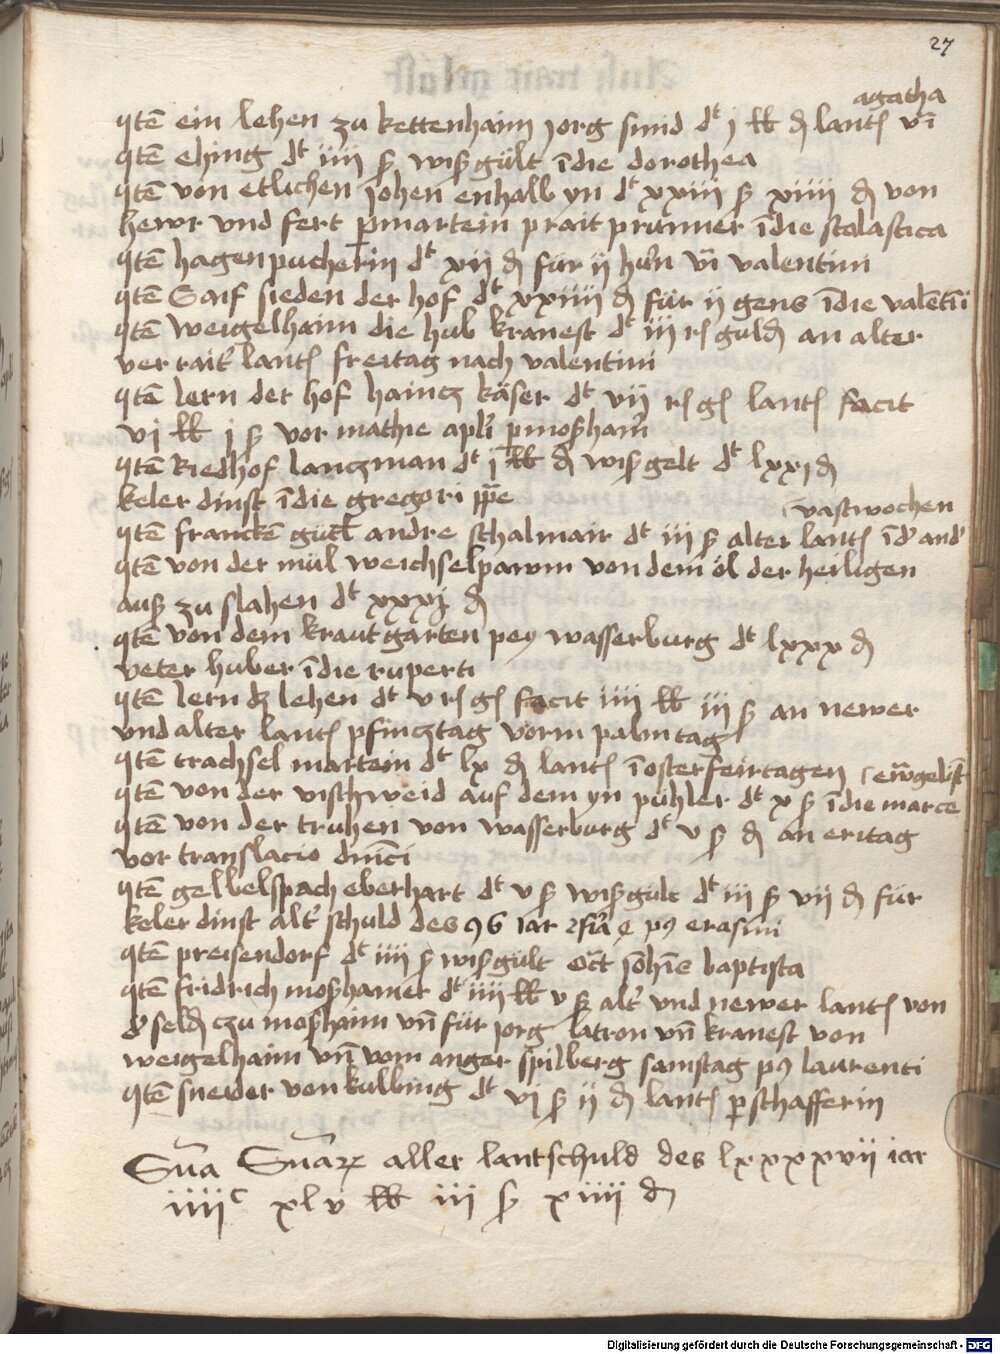 27
agatha
Itē ein lehen zu kettenhaim Jorg smid dt j ℔ ₰ lantß vī
Itē ehing dt iiij ß wisgült ī die dorothea
Itē von etlichen Johen enhalb yn dt xxiij ß xiiij ₰ von
hewr vnd fert p martein prait prunner ī die scolastica
Itē hagenpucherin dt xij ₰ für ij hūn vī valentini
Itē Saif sieden der hof dt xxiiij ₰ für ij gens ī die valētīi
Itē weigelhaim die hub kranest dt iij rß guldn an alter
ver rait lantß freitag nach valentini
Itē lern der hof haincz käser dt vij rß gß lantß facit
vj ℔ j ß vor mathie apłi p mosham
Itē Riedhof lanczman dt j ℔ ₰ wisgelt dt lxxj ₰
keler dinst ī die gregori ppe
vastwochen
Itē franckē gütl andre schalmair dt iij ß alter lantß ī d' and'
Itē von der mül weichselpawm von dem öl der heiligen
aus zu slahen dt xxxj ₰
Itē von dem krautgarten pey wasserburg dt lxxx ₰
veter huber ī die ruperti
Itē lern dz lehen dt v rß gß facit iiij ℔ iij ß an newer
vnd alter lantß pfincztag vorm palmtag
Itē trachsel martein dt lx ₰ lantß ī osterfeirtagen
ewgelist
Itē von der vischweid auf dem yn pühler dt x ß ī die marce
Itē von der truhen von wasserburg dt v ß ₰ an eritag
vor translacio dnīci
Itē gelbelspach eberhart dt v ß wisgült dt iij ß vij ₰ für
keler dinst alt' schuld des 96 iar p9 erasmi
Itē preisendorf dt iiij ß wisgült oct Johīs baptista
Itē fridrich moshamer dt iiij ℔ v ß alt' vnd newer lantß von
d' seldn czu moshaim vn für jorg latron vn kranest von
weigelhaim vn vom anger spilberg samstag p9 laurenti
Itē sneider von kulbing dt vj ß ij ₰ lantß p schafferin
Sūa Sūaꝝ aller lantschuld des lxxxxvij iar
iiijc xlv ℔ iij ß xiiij ₰
Digitalisierung gefördert durch die Deutsche Forschungsgemeinschaft - DFG